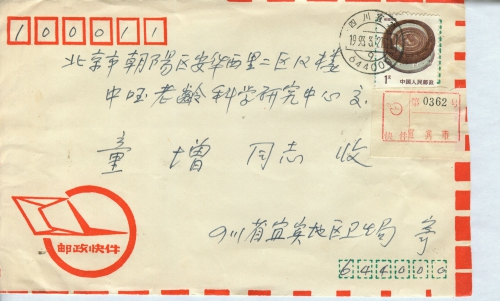 100011
四川宜
1993.3.2
644000
中国人民邮政
第 0362 号
快件 宜宾市
北京市朝陽区安华西里二区八楼
中 老龄科学研究中心 交
童增 同志 收
邮政快件
四川省宜宾地区卫生局 寄
644000